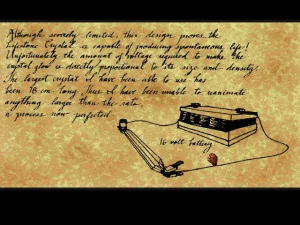 Although severely limited, this design proves the
Lifestone Crystal is capable of producing spontaneous life!
Unfortunately the amount of voltage required to make the
crystal glow is directly proportional to its size and density.
The largest crystal I have been able to use has
been 18 cm long. Thus I have been unable to reanimate
anything larger than the rats.
a process now perfected.
16 volt battery